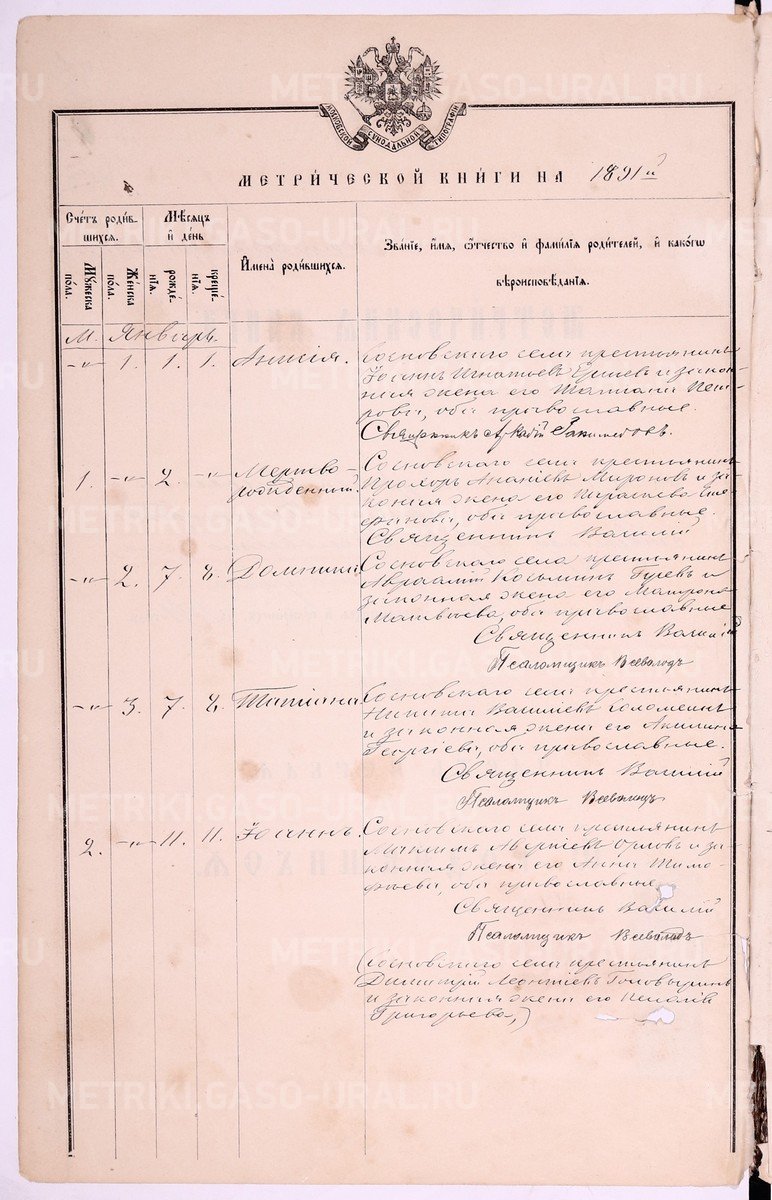 МОСКОВСКОЙ СѴНОДАЛЬНОЙ ТИПОГРАФІИ
МЕТРИ́ЧЕСКОЙ КНИ́ГИ НА 1891й
Сче́тъ роди́в-
шихся.
Мꙋжеска
по́ла.
Же́нска
по́ла.
Мѣ́сяцъ
и҆ де́нь
рожде́-
нїя.
креще́-
нїя.
И҆мена̀ роди́вшихся.
Зва́нїе, и҆́мя, ѻ҆́тчество и҆ фами́лїя роди́телей, и҆ како́гѡ
вѣроисповѣ́данїя.
М. Январь.
-"- 1. 1. 1. Анисія. Сосновскаго села крестьянинъ
Іоаннъ Игнатьевъ и закон-
ная жена его Татіана Пет-
рова, оба православные.
Священникъ Аркадій
1. -"- 2. -"- Мертво-
рожденный. Сосновскаго села крестьянинъ
Прохоръ Ананіевъ Мироновъ и за-
конная жена его Параскева
оба православные.
Священникъ Василій
-"- 2. 7. 8. Домника. Сосновскаго села крестьянинъ
Авраамій Косьминъ Гуревъ и
законная жена его Матрона
Матвѣева, оба православные
Священникъ Василій
Псаломщикъ Всеволодъ
-"- 3. 7. 8. Татіана Сосновскаго села крестьянинъ
Никита Василіевъ Соломеинъ
и законная жена его Акилина
Георгіева, оба православные.
Священникъ Василій
Псаломщикъ Всеволодъ
2. -"- 11. 11. Іоаннъ. Сосновскаго села крестьянинъ
Максимъ Авержіевъ Орловъ и за-
конная жена его Анна Тимо-
фѣева, оба православные
Священникъ Василій
Псаломщикъ Всеволодъ
(Сосновскаго села крестьянинъ
Димитрій Леонтіевъ Головыринъ
и законная жена его Пелагія
Григорьева,)
METRIKI.GASO-URAL.RU